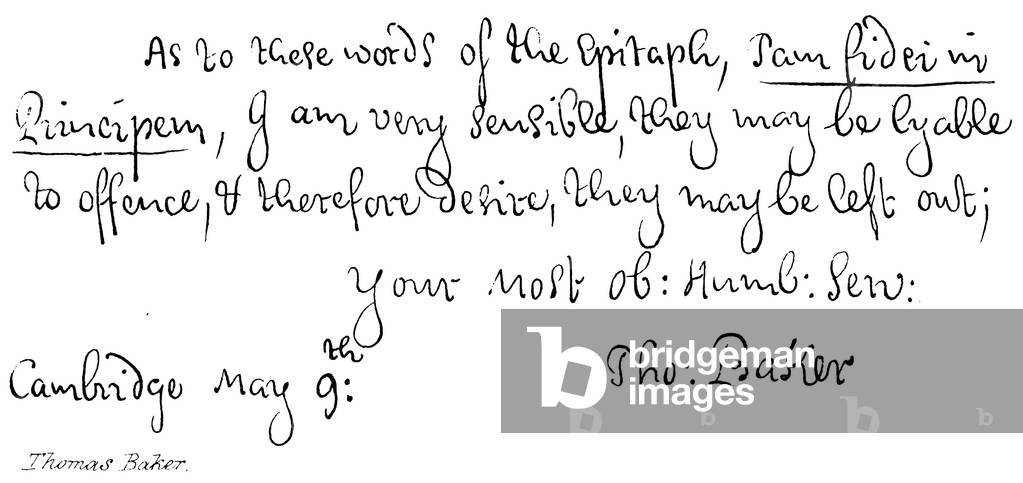 As to these words of the Epitaph, Tam fidei in
Principem, I am very sensible, they may be lyable
to offence, & therefore desire, they may be left out;
Your most ob: Humb: Serv:
Tho. Baker
Cambridge May 9:th
Thomas Baker.
bridgeman
images